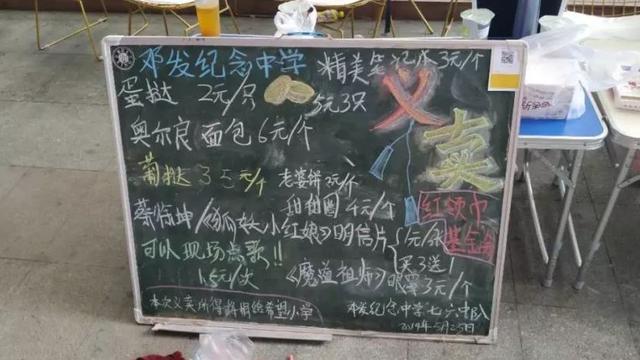 邓发纪念中学
精美笔记本3元/个
义卖
蛋挞 2元/只
5元3只
奥尔良面包6元/个
葡挞 3.5元/个
老婆饼 元/个
甜甜圈 4元/个
红领巾
基金会
蔡徐坤/《狐妖小红娘》明信片
1元/张
买3送1
可以现场点歌!!
1.5元/次
《魔道祖师》眼罩3元/个
本次义卖所得将捐给希望小学
邓发纪念中学七六中队
2019年5月25日